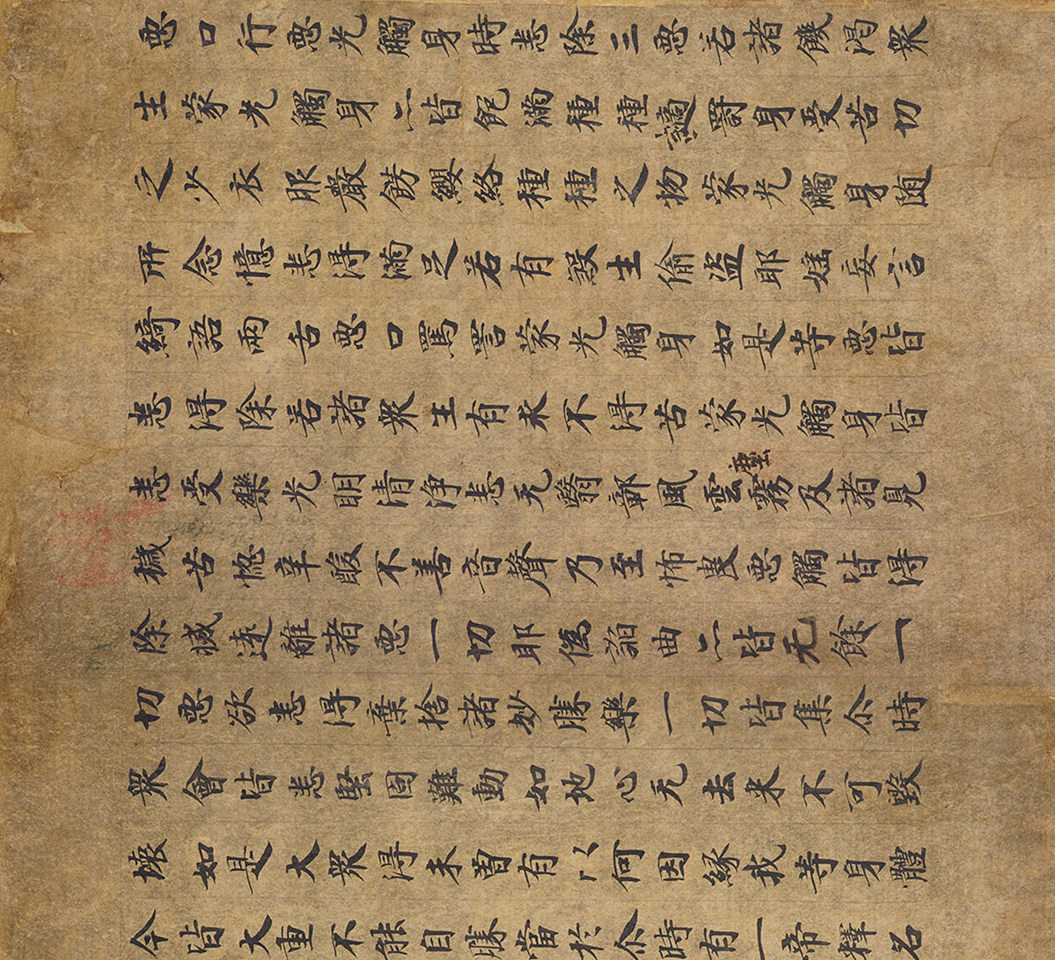 惡口行惡光觸身時悉除三惡若諸饑渴衆
生蒙光觸身亦皆飽滿種種讁罰身受苦切
之少衣服嚴餝纓絡種種之物蒙光觸身随
所念憶悉得滿足若有煞生偷盜耶婬妄言
綺語兩舌惡口罵詈蒙光觸身如是等惡皆
悉得除若諸衆生有求不得苦蒙光觸身皆
悉受樂光明清淨悉无翳鄣風雲塵霧及諸見
穢苦惱辛酸不善音聲乃至怖畏惡觸皆得
除滅遠離諸惡一切耶僞諂曲亦皆无餘一
切惡欲悉得棄捨諸妙勝樂一切皆集尒時
衆會皆悉堅固難動如地心无去来不可毀
壞如是大衆得未曾有以何因緣我等身體
今皆大重不能自勝當於尒時有一帝釋名